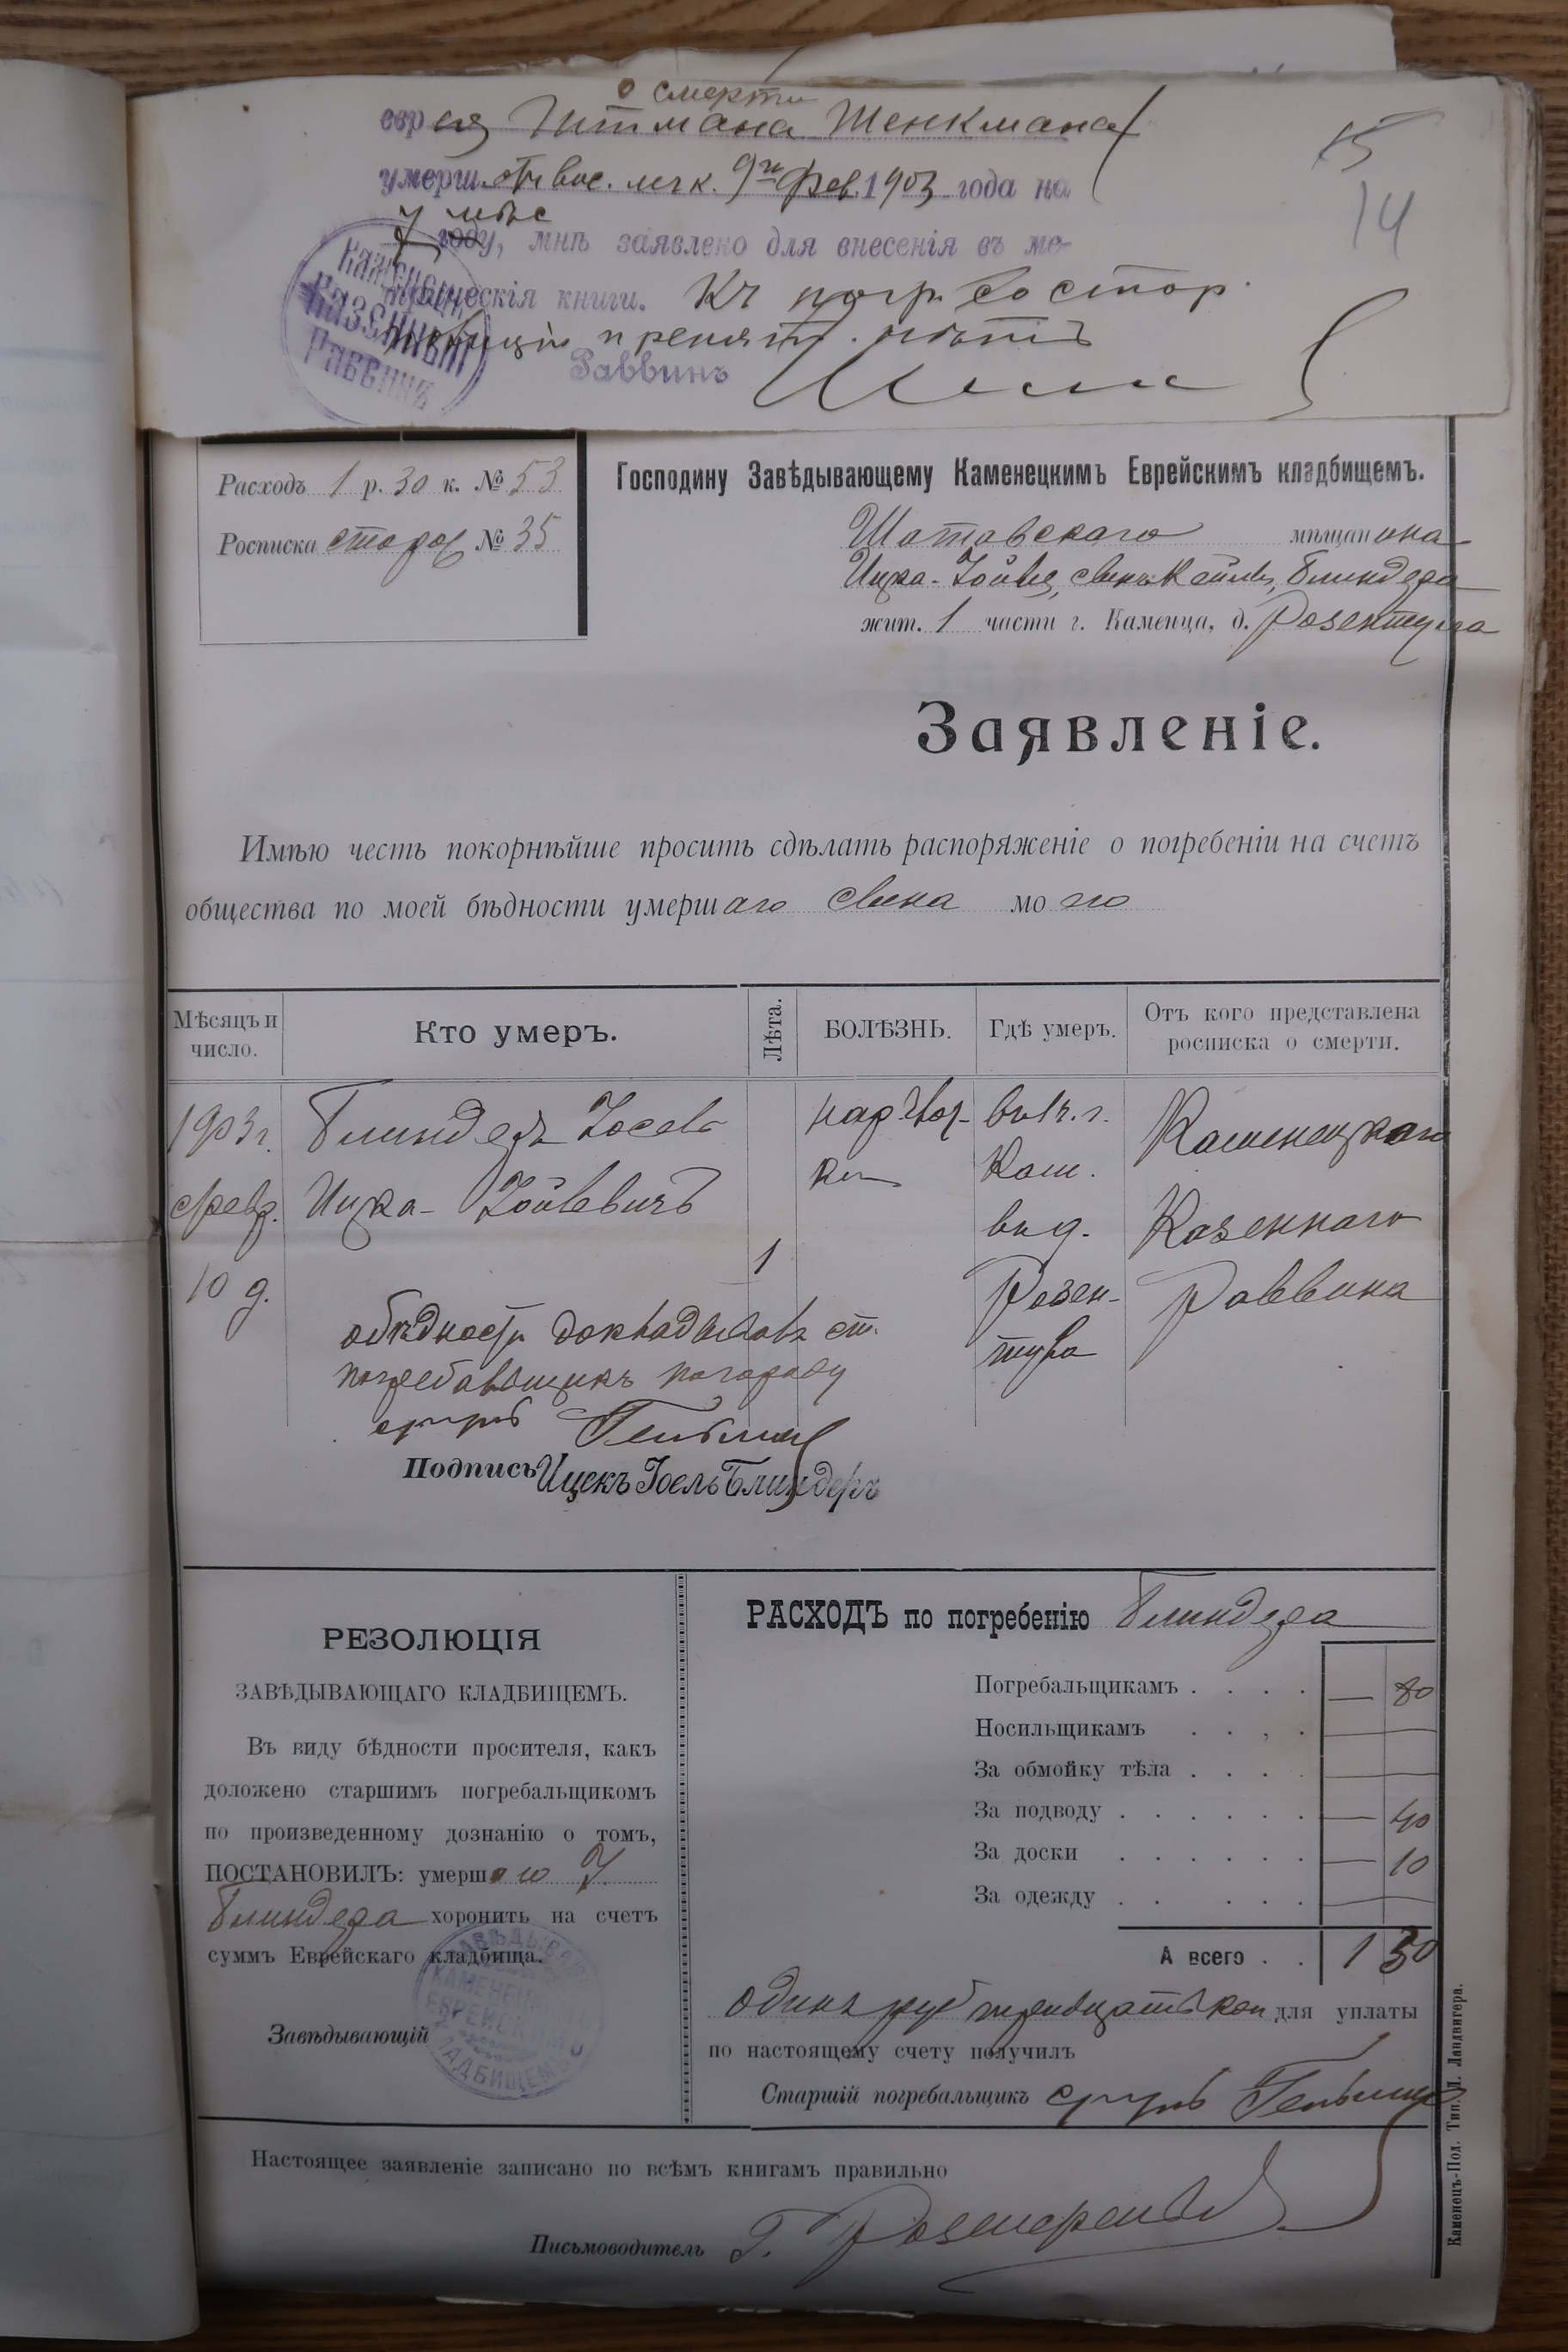 о смерти
еврея Гитмана Шенкмана
умерш. отъ вос. легк. 9го Фев. 1903 года на
7 мѣс
году, мнѣ заявлено для внесенія въ ме-
трическія книги. Къ погр. со стор.
препят. нѣтъ
Раввинъ
Каменецкій Казенный Раввинъ
15
14
Расходъ 1 р. 30 к. № 53
Росписка сторож № 35
Господину Завѣдывающему Каменецкимъ Еврейскимъ кладбищемъ.
Шатавскаго мѣщанина
Ицка-Іойны, Блиндера
жит. 1 части г. Каменца, д. Розентула
Заявленіе.
Имѣю честь покорнѣйше просить сдѣлать распоряженіе о погребеніи на счетъ
общества по моей бѣдности умершаго сына моего
Мѣсяцъ и число.
Кто умеръ.
Лѣта.
БОЛѢЗНЬ.
Гдѣ умеръ.
Отъ кого представлена росписка о смерти.
1903 г. Блиндеръ въ г. Каменецкаго
февр. Ицка- Кам. Казеннаго
10 д. 1 въ д. Раввина
Розен-
тула
о бѣдности докладывалъ ст.
погребальщикъ
Подпись Ицекъ Іоель Блиндеръ
РЕЗОЛЮЦІЯ
ЗАВѢДЫВАЮЩАГО КЛАДБИЩЕМЪ.
Въ виду бѣдности просителя, какъ
доложено старшимъ погребальщикомъ
по произведенному дознанію о томъ,
ПОСТАНОВИЛЪ: умершаго І.
Блиндера хоронить на счетъ
суммъ Еврейскаго кладбища.
Завѣдывающій
ЗАВѢДЫВАЮ КАМЕНЕЦКИМЪ ЕВРЕЙСКИМЪ КЛАДБИЩЕМЪ
РАСХОДЪ по погребенію Блиндера
Погребальщикамъ . . . . — 80
Носильщикамъ . . . .
За обмойку тѣла . . . .
За подводу . . . . . . — 40
За доски . . . . . . — 10
За одежду . . . . .
А всего . . 1 30
одинъ руб тридцать коп для уплаты
по настоящему счету получилъ
Старшій погребальщикъ
Настоящее заявленіе записано по всѣмъ книгамъ правильно
Письмоводитель Г.
Каменецъ-Под. Тип. Д. Ландвигера.